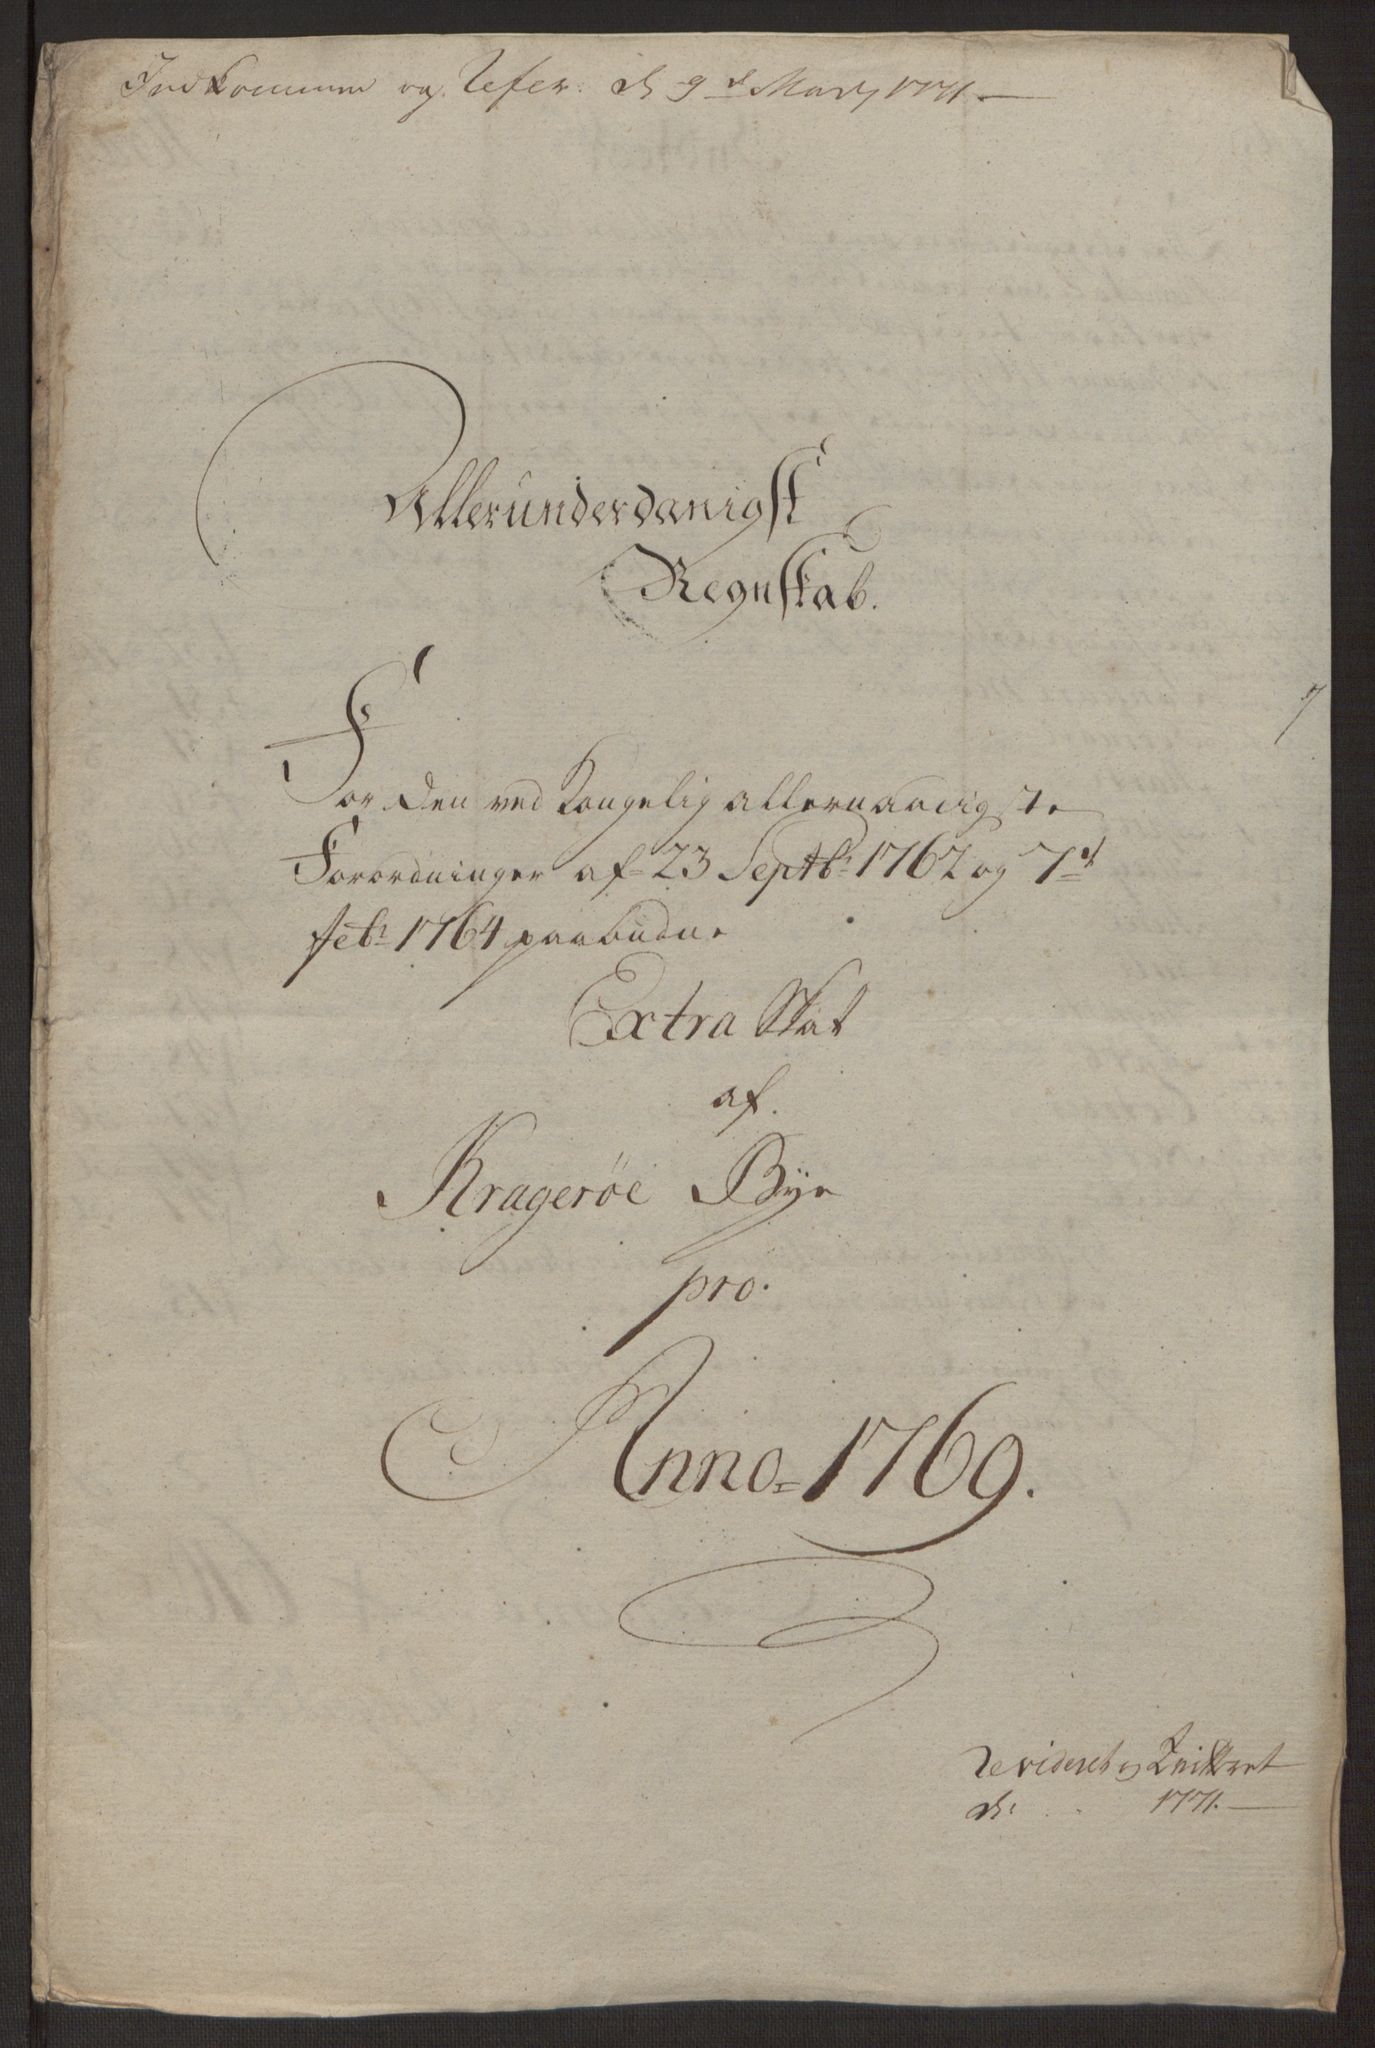 Indkommen og Refer: d 9d Marty 1771.
Allerunderdanigst
Regnskab.
For den ved Kongelig allernaadigste
Forordninger af 23 Septbr: 1762 og 7d
febr: 1764 paabudne
Extra Skat
af.
Kragerøe Bÿe
pro.
Anno = 1769.
Revideret og Qvitteret
d: 1771.